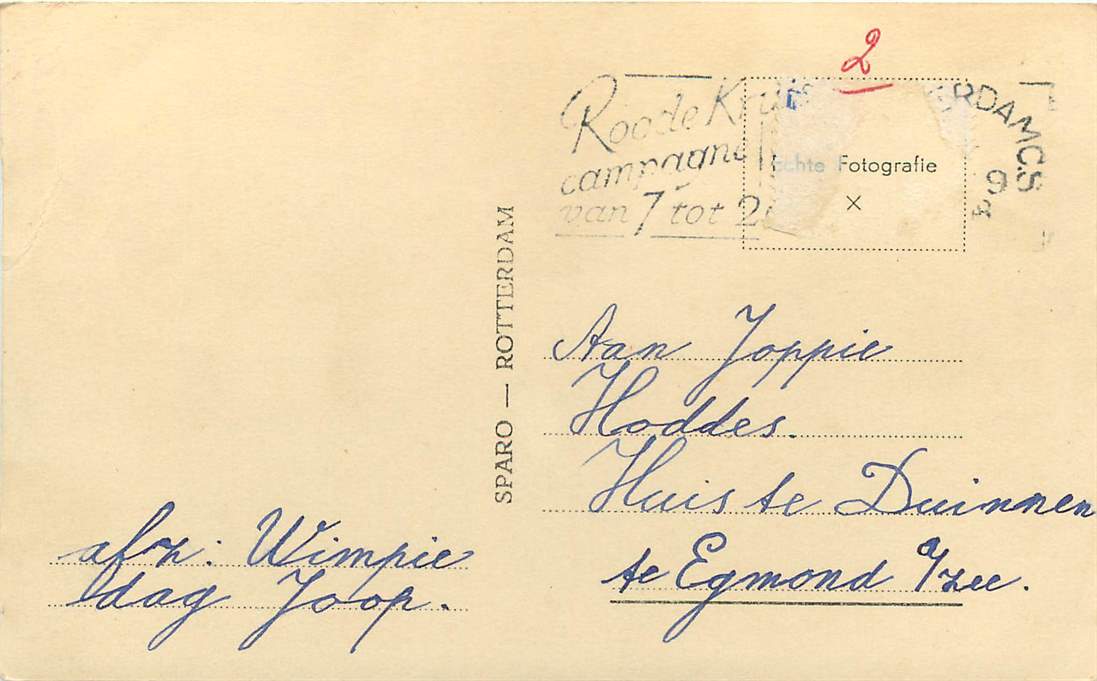 2
Roode Kruis
campagne
van 7 tot 2
RDAM C.S
9
Echte Fotografie
x
SPARO — ROTTERDAM
Aan Joppie
Hoddes.
Huis te Duinnen
te Egmond a/zee.
afz: Wimpie
dag Joop.